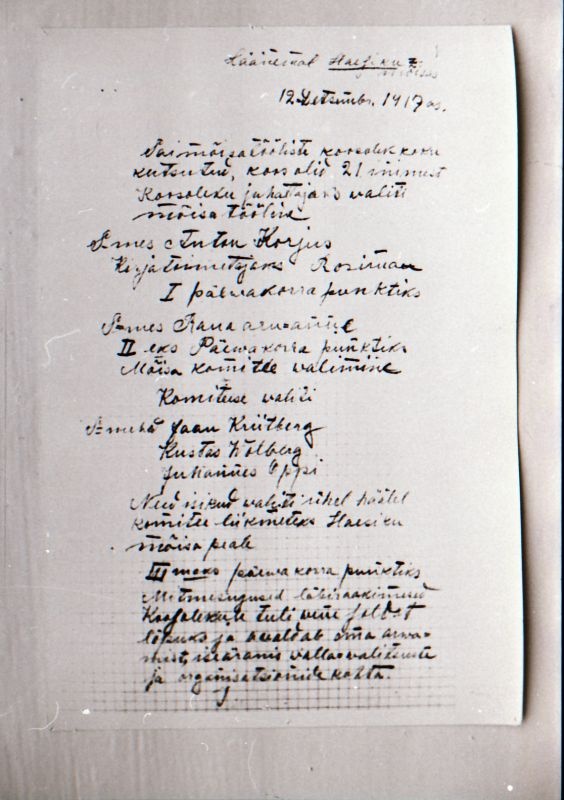 Läänemaal Haesiku
mõisas
12 Detsembr. 1917 as.
Sai mõisatööliste koosolek kokku
kutsutud, koos olid 21 inimest
Koosoleku juhatajaks valiti
mõisa tööline
S-mes Anton Korjus
Kirjatoimetajaks Rosiman
I päewakorra punktiks
S-mes Rana aruanne
II eks Päewakorra punktiks
Mõisa komitee walimine
Komiteesse waliti
S-mehed Jaan Kriitberg
Kustas Wolberg
Juhannes Oppi
Need isikud waliti ühel häälel
komitee liikmeteks Haesiku
mõisa peale
III meks päewakorra punktiks
Mitmesugused läbirääkimised
Koosolekule tuli wene soldat
lõpuks ja awaldab oma arwa-
mist, iseäranis wallawalitsuste
ja organisatsionide kohta.